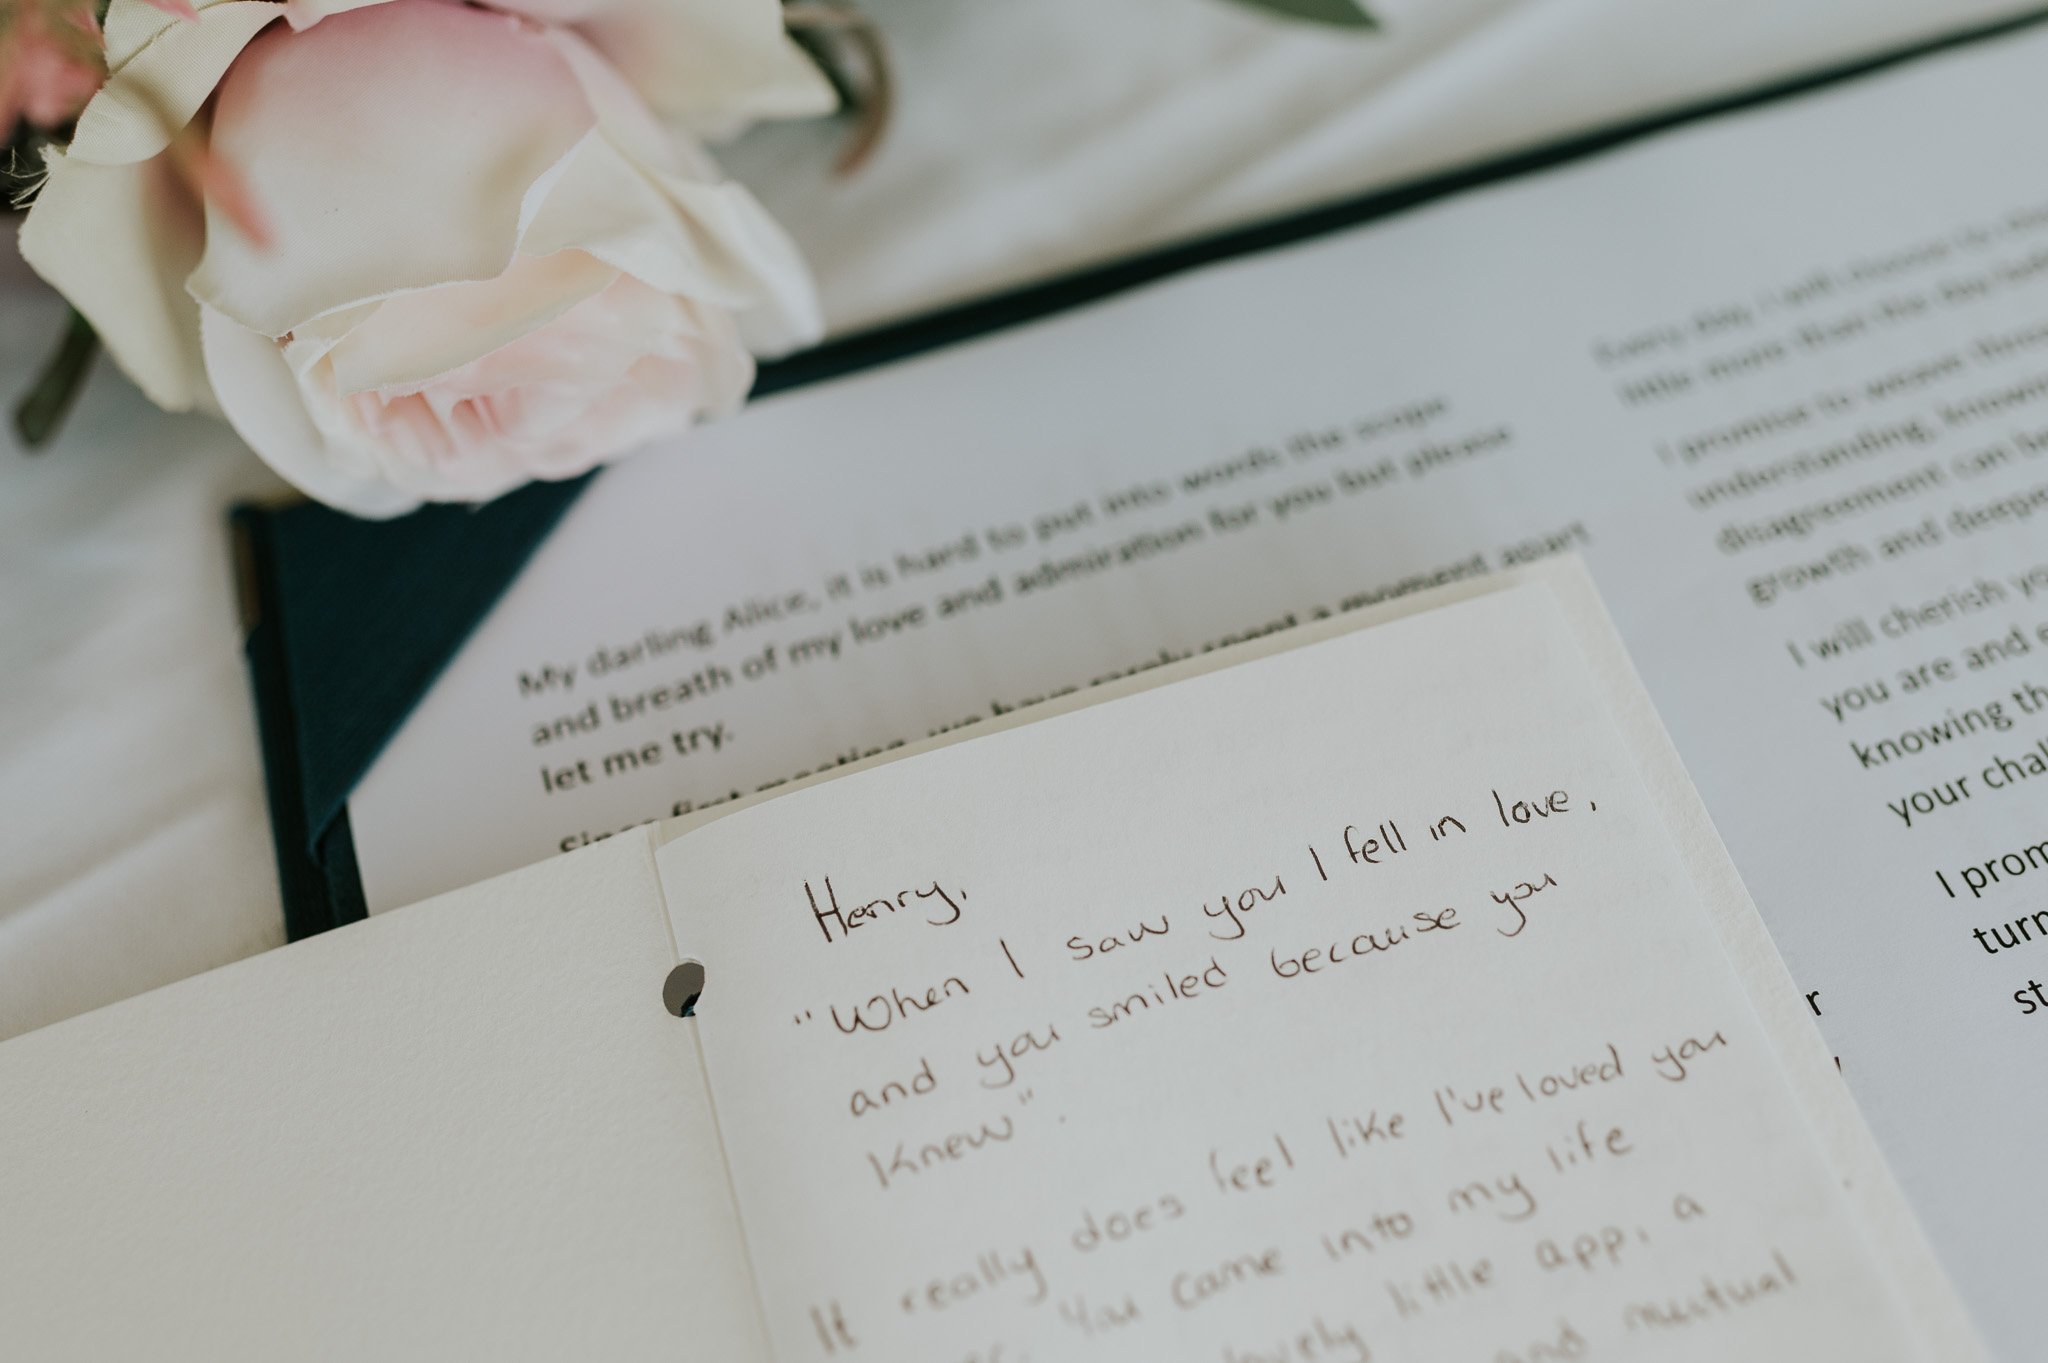 My darling Alice, it is hard to put into words the scope
and breath of my love and admiration for you but please
let me try.
Since first meeting, we have rarely spent a moment apart
Every day I will
little more than the day
I promise to weave
understanding,
disagreement can be
growth and
I will cherish
you are and
knowing
your
I
r
Henry,
"When I saw you I fell in love,
and you smiled because you
knew".
It really does feel like I've loved you
You came into my life
lovely little app, a
and mutual